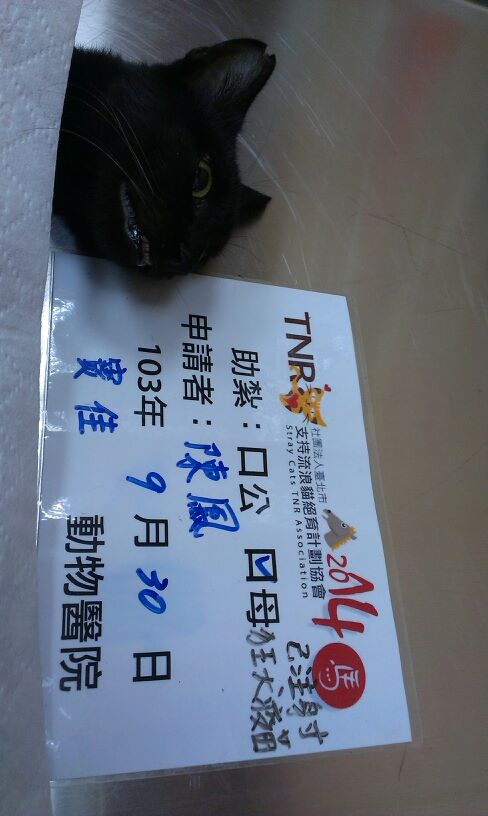 TNR
社團法人臺北市
支持流浪貓絕育計劃協會
Stray Cats TNR Association
2014
馬
已注射
狂犬疫苗
助紮：口公 口母
申請者：陳鳳
103年 9月30日
寶佳 動物醫院